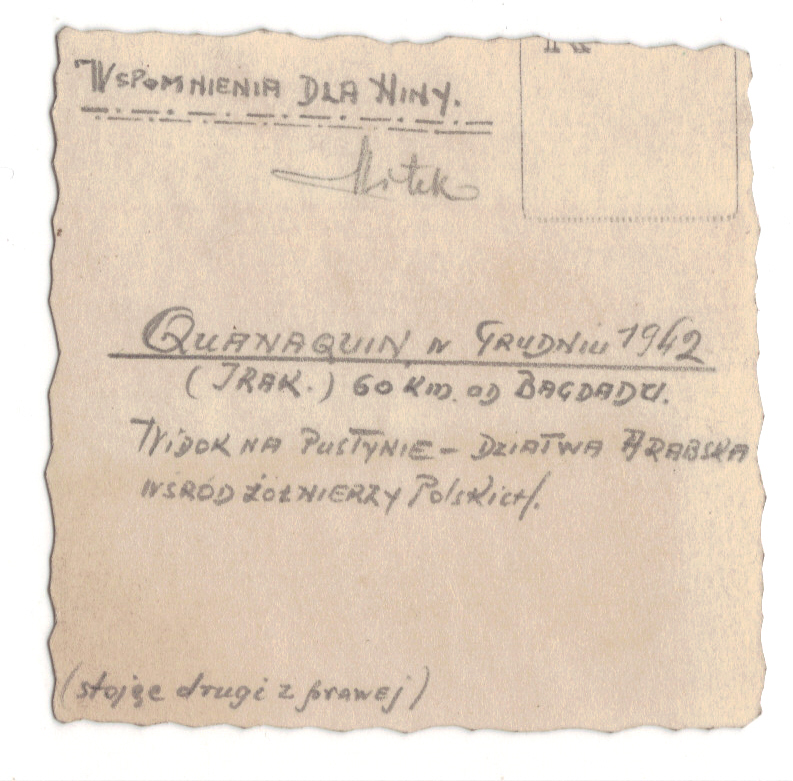 Wspomnienia dla Niny.
Mitek
Quanaquin w Grudniu 1942
(Irak.) 60 km. od Bagdadu.
Widok na Pustynie – Dziatwa Arabska
wśród żołnierzy Polskich.
(stojąc drugi z prawej)